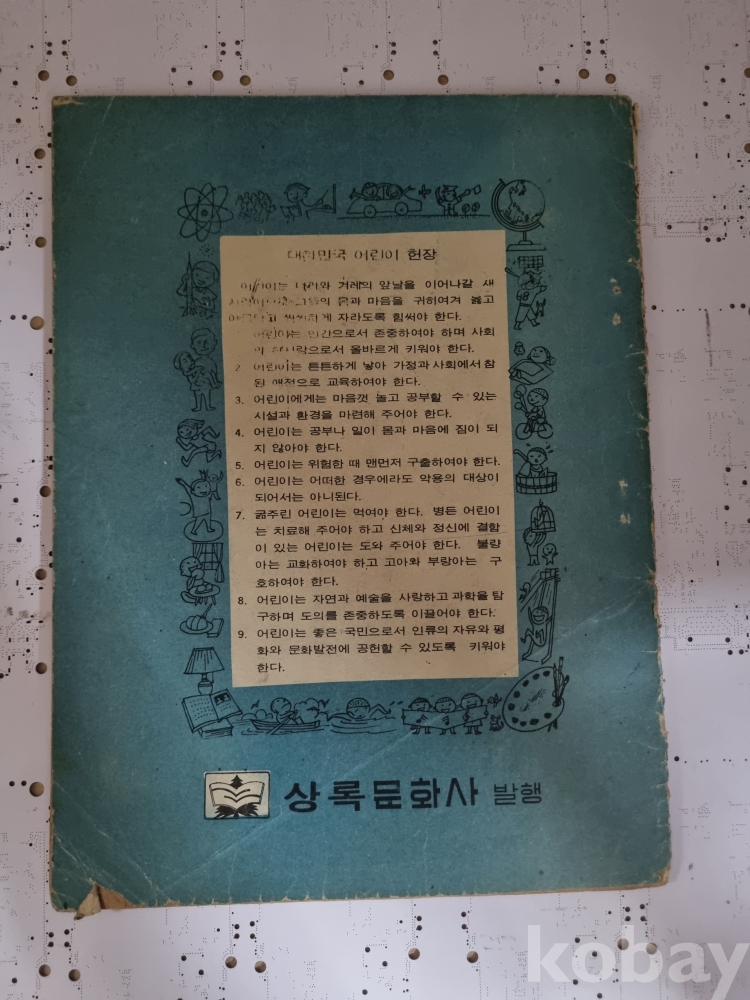 대한민국 어린이 헌장
어린이는 나라와 겨레의 앞날을 이어나갈 새
몸과 마음을 귀히여겨 옳고
자라도록 힘써야 한다.
어린이는 인간으로서 존중하여야 하며 사회
올바르게 키워야 한다.
2. 어린이는 튼튼하게 낳아 가정과 사회에서 참
된 애정으로 교육하여야 한다.
3. 어린이에게는 마음껏 놀고 공부할 수 있는
시설과 환경을 마련해 주어야 한다.
4. 어린이는 공부나 일이 몸과 마음에 짐이 되
지 않아야 한다.
5. 어린이는 위험한 때 맨먼저 구출하여야 한다.
6. 어린이는 어떠한 경우에라도 악용의 대상이
되어서는 아니된다.
7. 굶주린 어린이는 먹여야 한다. 병든 어린이
는 치료해 주어야 하고 신체와 정신에 결함
이 있는 어린이는 도와 주어야 한다. 불량
아는 교화하여야 하고 고아와 부랑아는 구
호하여야 한다.
8. 어린이는 자연과 예술을 사랑하고 과학을 탐
구하며 도의를 존중하도록 이끌어야 한다.
9. 어린이는 좋은 국민으로서 인류의 자유와 평
화와 문화발전에 공헌할 수 있도록 키워야
한다.
상록문화사 발행
kobay